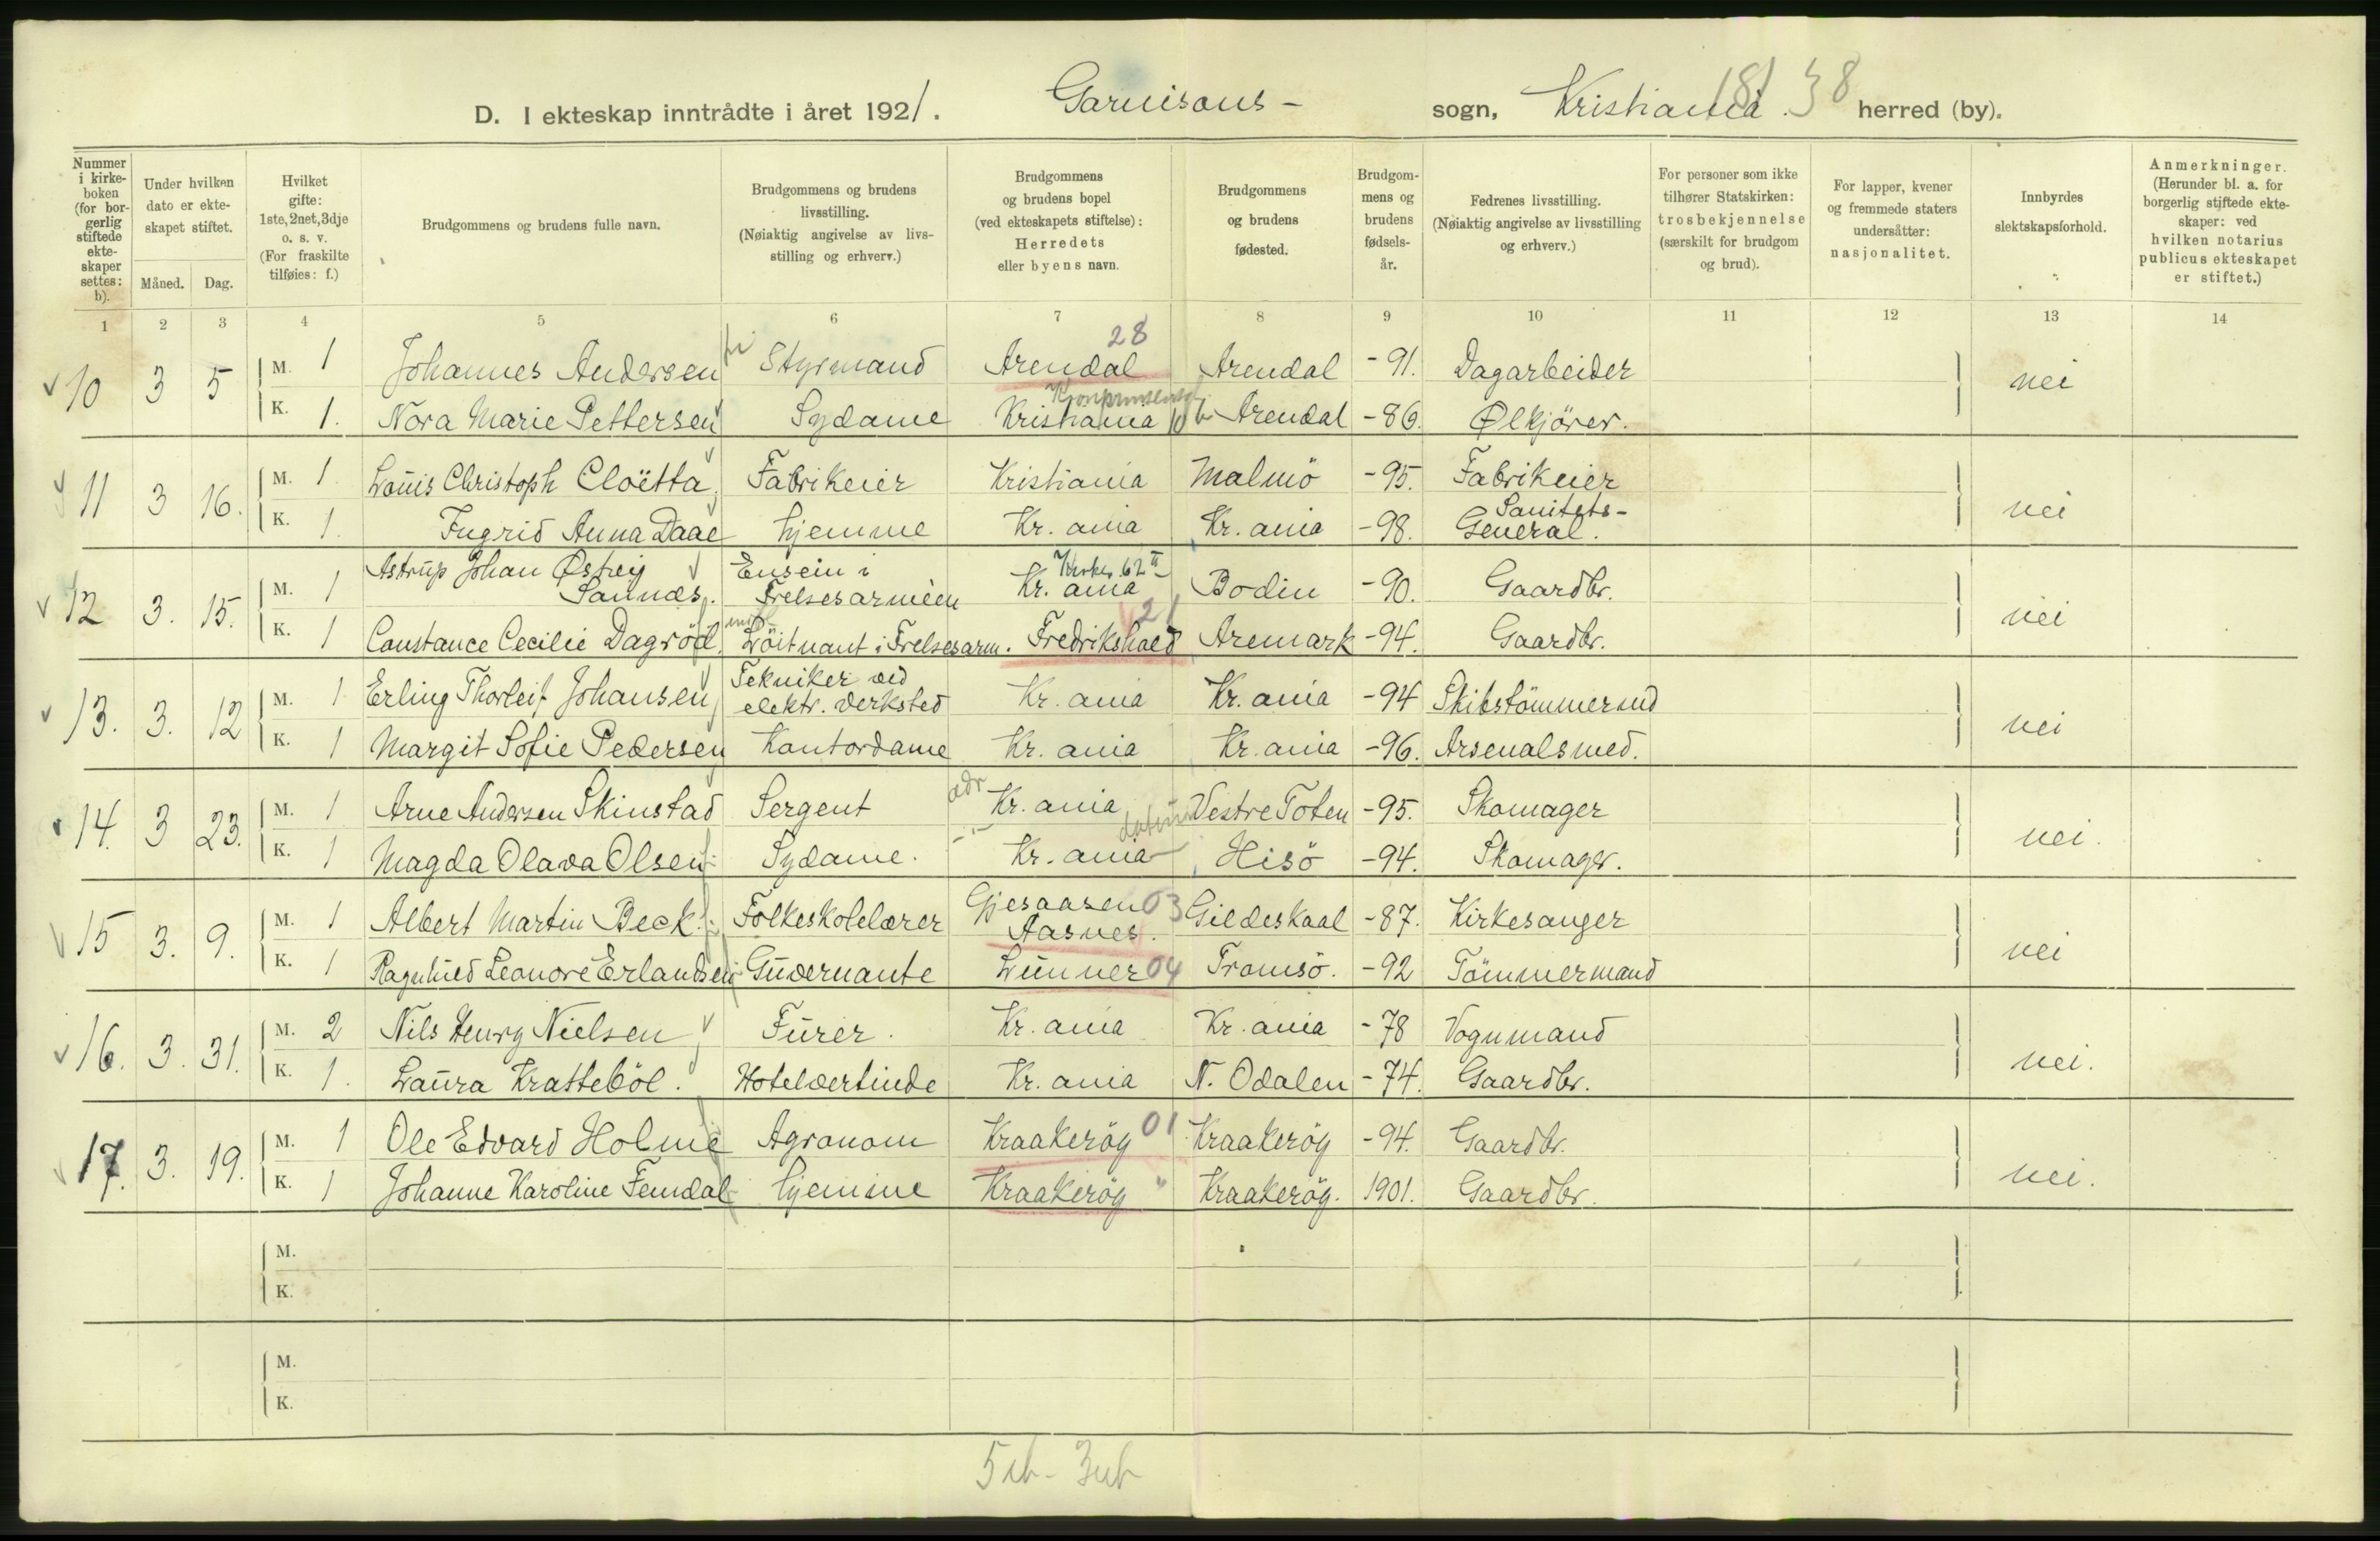 D. I ekteskap inntrådte i året 1921. Garnisons - sogn, Kristiania. herred (by).
181 38
Nummer i kirkeboken (for borgerlig stiftede ekteskaper settes: b).
Under hvilken dato er ekteskapet stiftet.
Måned. Dag.
Hvilket gifte: 1ste, 2net, 3dje o. s. v. (For fraskilte tilføies: f.)
Brudgommens og brudens fulle navn.
Brudgommens og brudens livsstilling. (Nøiaktig angivelse av livsstilling og erhverv.)
Brudgommens og brudens bopel (ved ekteskapets stiftelse): Herredets eller byens navn.
Brudgommens og brudens fødested.
Brudgommens og brudens fødselsår.
Fedrenes livsstilling. (Nøiaktig angivelse av livsstilling og erhverv.)
For personer som ikke tilhører Statskirken: trosbekjennelse (særskilt for brudgom og brud).
For lapper, kvener og fremmede staters undersåtter: nasjonalitet.
Innbyrdes slektskapsforhold.
Anmerkninger. (Herunder bl. a. for borgerlig stiftede ekteskaper: ved hvilken notarius publicus ekteskapet er stiftet.)
1 2 3 4 5 6 7 8 9 10 11 12 13 14
28
10 3 5 M. 1 Johannes Andersen Styrmand Arendal Arendal -91. Dagarbeider nei
K. 1. Nora Marie Pettersen Sydame Kristiania 10 b Arendal -86. Ølkjörer.
11 3 16. M. 1. Louis Christoph Cloëtta Fabrikeier Kristiania Malmö -95. Fabrikeier nei
K. 1. Ingrid Anna Daae hjemme Kr. ania Kr. ania -98. Sanitets-General.
12 3. 15. M. 1 Astrup Johan Østrey Sannæs. Ensein i Frelsesarmeen Kr. ania Bodin -90. Gaardbr. nei
21
K. 1 Constance Cecilie Dagröd. Löitnant i Frelsesarm. Fredrikshald Aremark -94. Gaardbr.
13. 3. 12 M. 1 Erling Thorleif Johansen Tekniker ved elektr. verksted Kr. ania Kr. ania -94 Skibstömmermd nei
K. 1 Margit Sofie Pedersen Kontordame Kr. ania Kr. ania -96. Arsenalsmed.
14. 3 23. M. 1 Arne Andersen Skinstad Sergent adr Kr. ania Vestre Toten -95. Skomager nei.
K. 1 Magda Olava Olsen Sydame. Kr. ania Hisö -94. Skomager.
15 3. 9. M. 1 Albert Martin Beck. Folkeskolelærer Gjesaasen 03 Aasnes. Gildeskaal -87. Kirkesanger nei
K. 1 Ragnhild Leonore Erlandsen Guvernante Lunner 04 Tromsö. -92 Tömmermand
16. 3. 31. M. 2 Nils Henry Nielsen Furer. Kr. ania Kr. ania -78 Vognmand nei.
K. 1. Laura Kratteböl. Hotelvertinde Kr. ania N. Odalen -74. Gaardbr.
17. 3. 19. M. 1 Ole Edvard Holme Agronom Kraakeröy 01 Kraakeröy -94. Gaardbr. nei.
K. 1 Johanne Karoline Femdal hjemme Kraakeröy " Kraakeröy. 1901. Gaardbr.
M.
K.
M.
K.